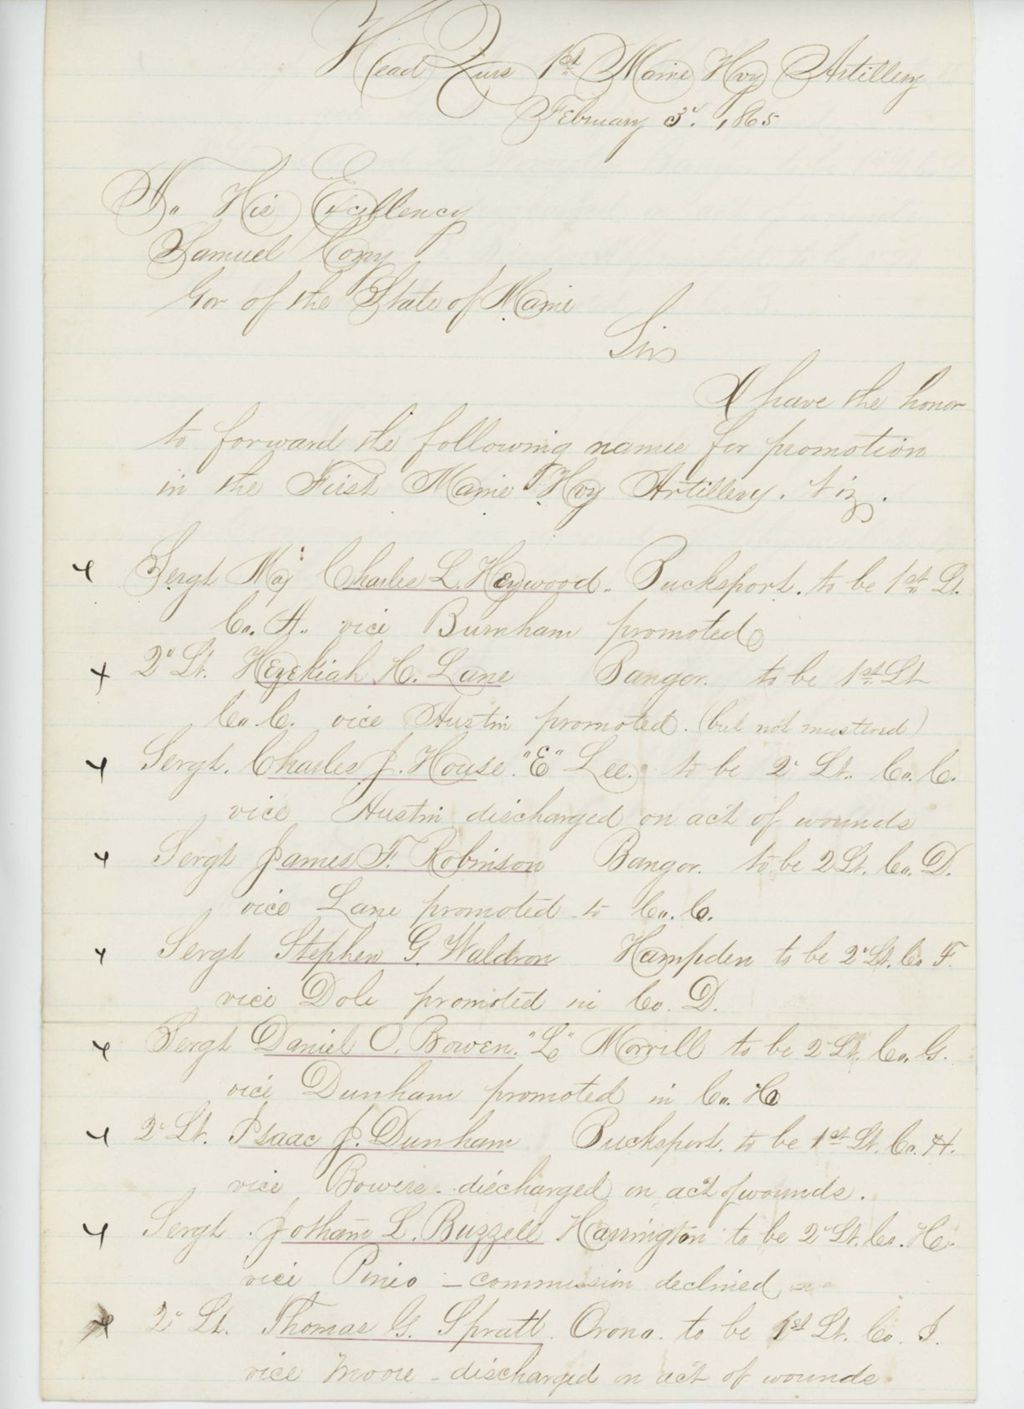 Head Qurs 1st Maine Hvy Artillery
February 3d, 1865
To His Excellency
Samuel Cony
Gov of the State of Maine
Sir
I have the honor
to forward the following names for promotion
in the First Maine Hvy Artillery. Viz.
x Sergt Maj: Charles L. Heywood. Bucksport. to be 1st Lt.
Co. A. vice Burnham promoted
x 2d Lt. Hezekiah H. Lane Bangor. to be 1st Lt
Co. C. vice Austin promoted. (but not mustered)
x Sergt. Charles J. House. "E" Lee. to be 2d Lt. Co. C.
vice Austin discharged on act of wounds
x Sergt James F. Robinson Bangor. to be 2 Lt. Co. D.
vice Lane promoted to Co. C.
x Sergt Stephen G. Waldron Hampden to be 2d Lt. Co F.
vice Dole promoted in Co. D.
x Sergt Daniel O. Bowen. "L" Morrill to be 2d Lt. Co. G.
vice Dunham promoted in Co. H
x 2d Lt. Isaac J. Dunham Bucksport. to be 1st Lt. Co. H.
vice Bowers discharged on act of wounds.
x Sergt. Jotham L. Buzzell Harrington to be 2d Lt. Co. H.
vice Pineo - commission declined
x 2d Lt. Thomas G. Spratt. Orono. to be 1st Lt. Co. I.
vice Moore - discharged on act of wounds